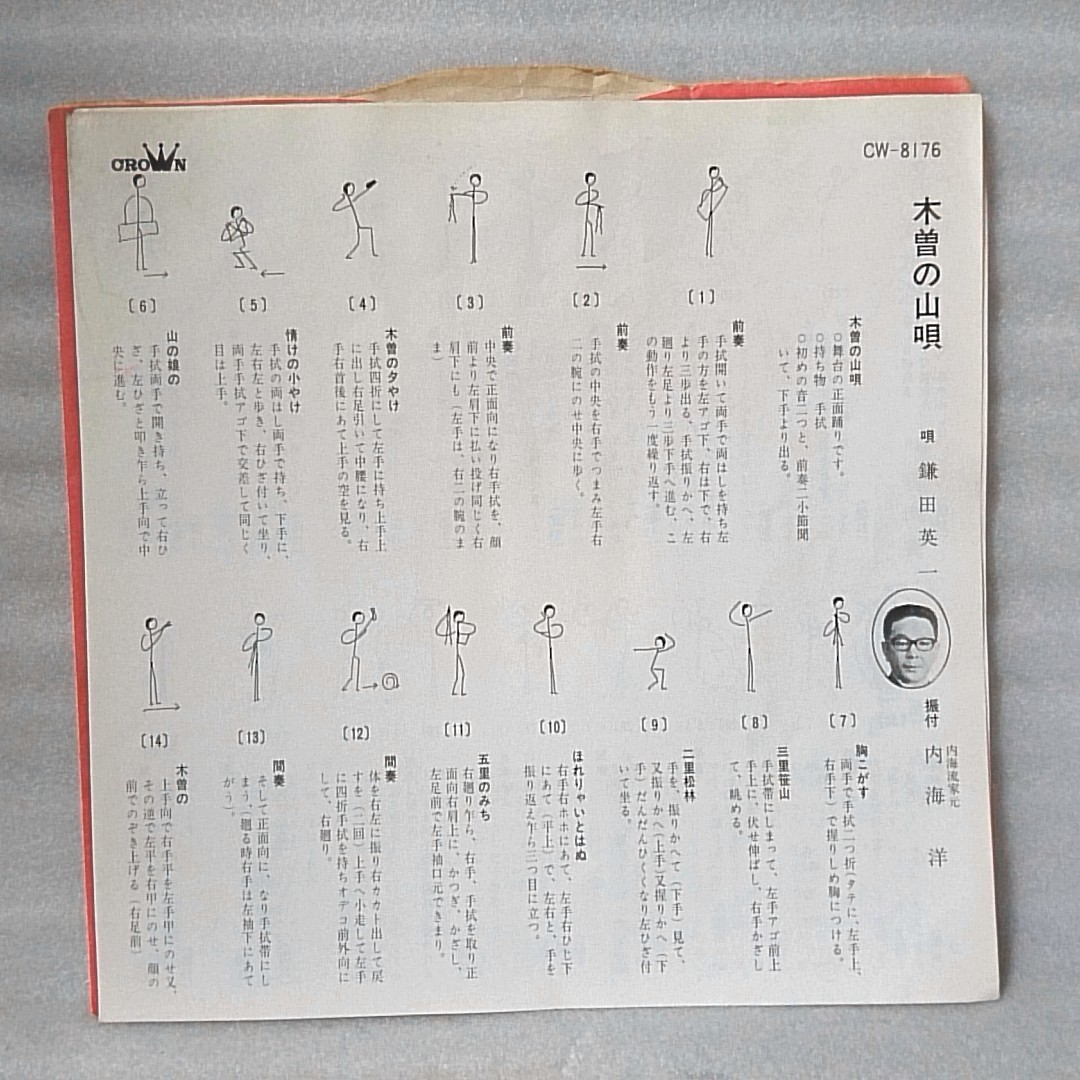 CROWN
CW-8176
木曽の山唄
唄 鎌田英一
振付 内海 洋
内海流家元
木曽の山唄
○舞台の正面踊りです。
○持ち物 手拭
○初めの音二つと、前奏二小節聞
いて、下手より出る。
〔1〕
前奏
手拭開いて両手で両はしを持ち左
手の方を左アゴ下、右は下で、右
より三歩出る、手拭振りかへ、左
廻り左足より三歩下手へ進む、こ
の動作をもう一度繰り返す。
〔2〕
前奏
手拭の中央を右手でつまみ左手右
二の腕にのせ中央に歩く。
〔3〕
前奏
中央で正面向になり右手拭を、顔
前より左肩下に払い投げ同じく右
肩下にも（左手は、右二の腕のま
ま）
〔4〕
木曽の夕やけ
手拭四折にして左手に持ち上手上
に出し右足引いて中腰になり、右
手右首後にあて上手の空を見る。
〔5〕
情けの小やけ
手拭の両はし両手で持ち、下手に、
左右左と歩き、右ひざ付いて坐り、
両手手拭アゴ下で交差して同じく
目は上手。
〔6〕
山の娘の
手拭両手で開き持ち、立って右ひ
ざ、左ひざと叩き乍ら上手向で中
央に進む。
〔7〕
胸こがす
両手で手拭二つ折（タテに、左手上、
右手下）で握りしめ胸につける。
〔8〕
三里笹山
手拭帯にしまって、左手アゴ前上
手上に、伏せ伸ばし、右手かざし
て、眺める。
〔9〕
二里松林
手を、振りかへて（下手）見て、
又振りかへ（上手）又握りかへ（下
手）だんだんひくくなり左ひざ付
いて坐る。
〔10〕
ほれりゃいとはぬ
右手右ホホにあて、左手右ひじ下
にあて（平上）で、左右と、手を
振り返え乍ら三つ目に立つ。
〔11〕
五里のみち
右廻り乍ら、右手、手拭を取り正
面向右肩上に、かつぎ、かざし、
左足前で左手袖口元できまり。
〔12〕
間奏
体を右左に振り右カカト出して戻
すを（二回）上手へ小走して左手
に四折手拭を持ちオデコ前外向に
して、右廻り。
〔13〕
間奏
そして正面向に、なり手拭帯にし
まう、（廻る時右手は左袖下にあて
がう）。
〔14〕
木曽の
上手向で右手平を左手甲にのせ又、
その逆で左平を右甲にのせ、顔の
前でのぞき上げる（右足前）